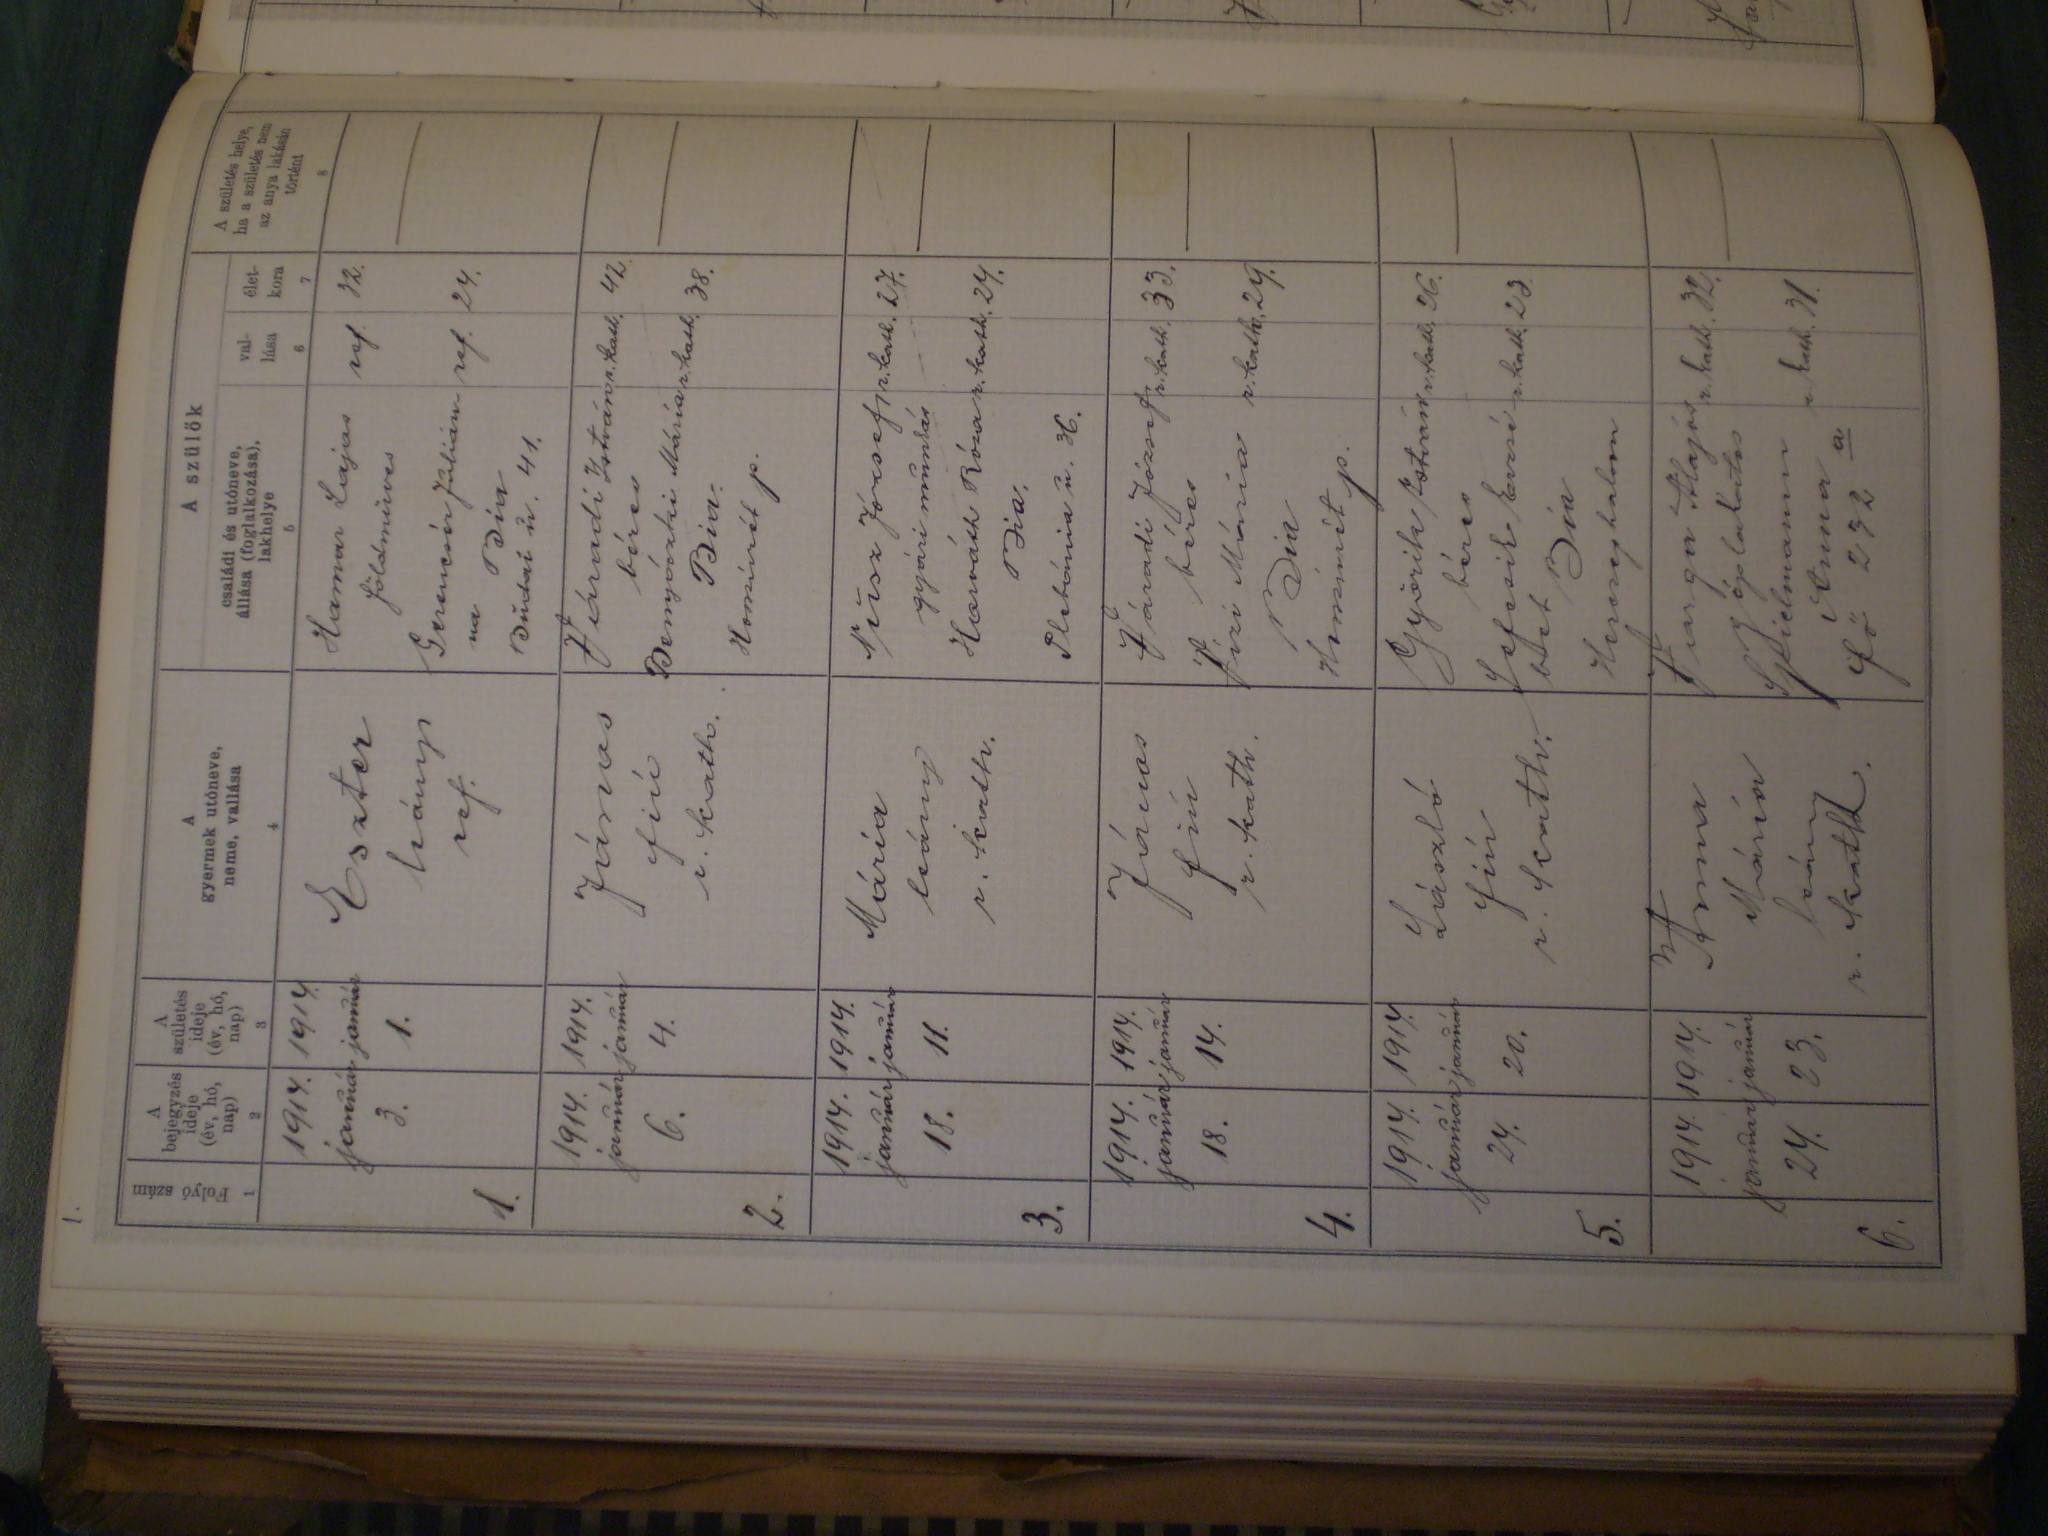 1.
Folyó szám
A bejegyzés ideje (év, hó, nap)
A születés ideje (év, hó, nap)
A gyermek utóneve, neme, vallása
A szülők
családi és utóneve, állása (foglalkozása), lakhelye
val-lása
élet-kora
A születés helye, ha a születés nem az anya lakásán történt
1 2 3 4 5 6 7 8
1.
1914. január 3.
1914. január 1.
Eszter
leány
ref.
Hamar Lajos ref. 32.
földműves
Gerencsér Juliánna ref. 24.
Bia
Budai u. 41.
2.
1914. január 6.
1914. január 4.
János
fiú
r. kath.
Váradi István r. kath. 42.
béres
Mária r. kath. 38.
Bia.
p.
3.
1914. január 18.
1914. január 11.
Mária
leány
r. kath.
Nüsz József r. kath. 27.
gyári munkás
Horváth Róza r. kath. 24.
Bia.
Plebánia u. 36.
4.
1914. január 18.
1914. január 14.
János
fiú
r. kath.
Váradi József r. kath. 33.
béres
Füzi Mária r. kath. 29.
Bia
p.
5.
1914. január 24.
1914. január 20.
László
fiú
r. kath.
Györik István r. kath. 26.
béres
Erzsébet r. kath. 23
Bia
Herczeghalom
6.
1914. január 24.
1914. január 23.
Anna
Mária
leány
r. kath.
Varga Alajos r. kath. 32.
géplakatos
Spielmann Anna r. kath. 31.
Fő 272 a